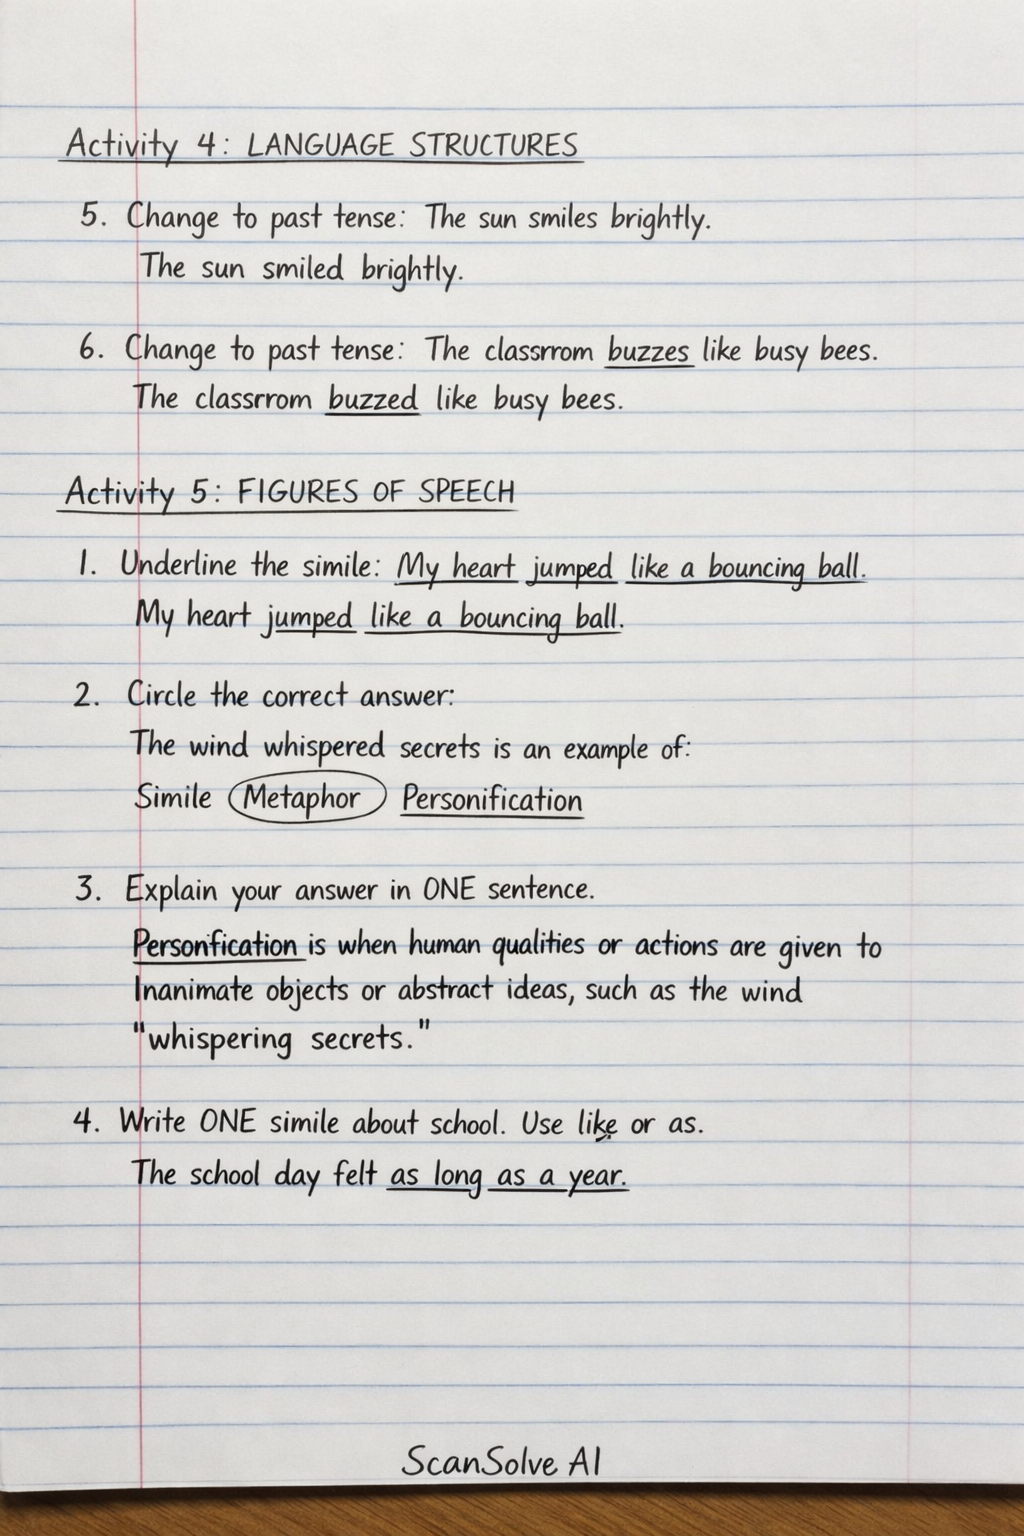 Activity 4: LANGUAGE STRUCTURES
5. Change to past tense: The sun smiles brightly.
The sun smiled brightly.
6. Change to past tense: The classrrom buzzes like busy bees.
The classrrom buzzed like busy bees.
Activity 5: FIGURES OF SPEECH
1. Underline the simile: My heart jumped like a bouncing ball.
My heart jumped like a bouncing ball.
2. Circle the correct answer:
The wind whispered secrets is an example of:
Simile Metaphor Personification
3. Explain your answer in ONE sentence.
Personfication is when human qualities or actions are given to
Inanimate objects or abstract ideas, such as the wind
"whispering secrets."
4. Write ONE simile about school. Use like or as.
The school day felt as long as a year.
ScanSolve AI